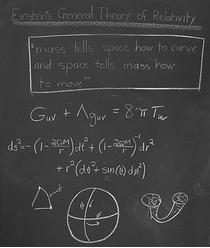 Einstein's General Theory of Relativity
"mass tells space how to curve
and space tells mass how
to move"
Guv + Λguv = 8πTuv
ds² = -(1-2GM/r)dt² + (1-2GM/r)⁻¹dr²
+ r²(dθ² + sin(θ)dφ²)
θ
φ